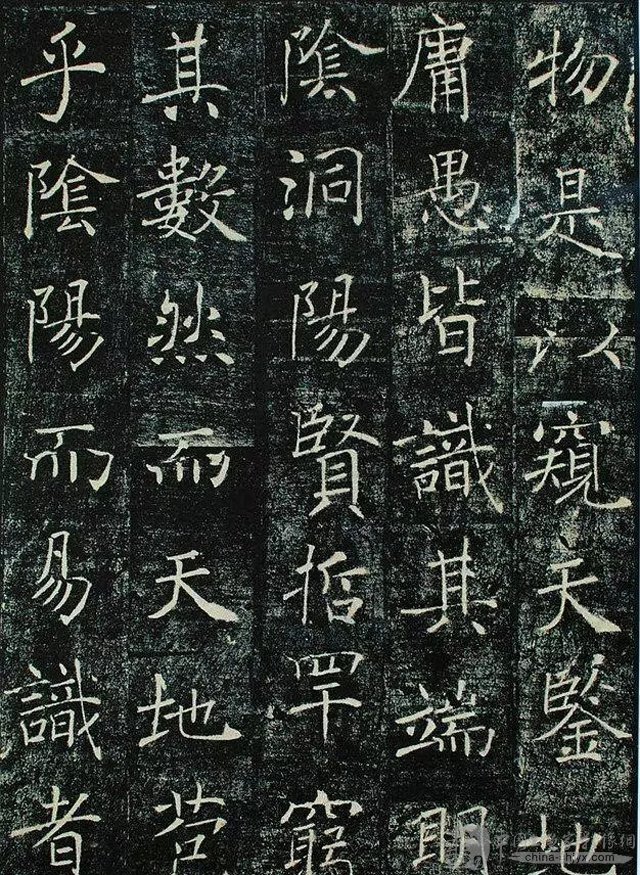 物是以窺天鑒地
庸愚皆識其端明
陰洞陽賢哲罕窮
其數然而天地苞
乎陰陽而易識者
china-shyx.com